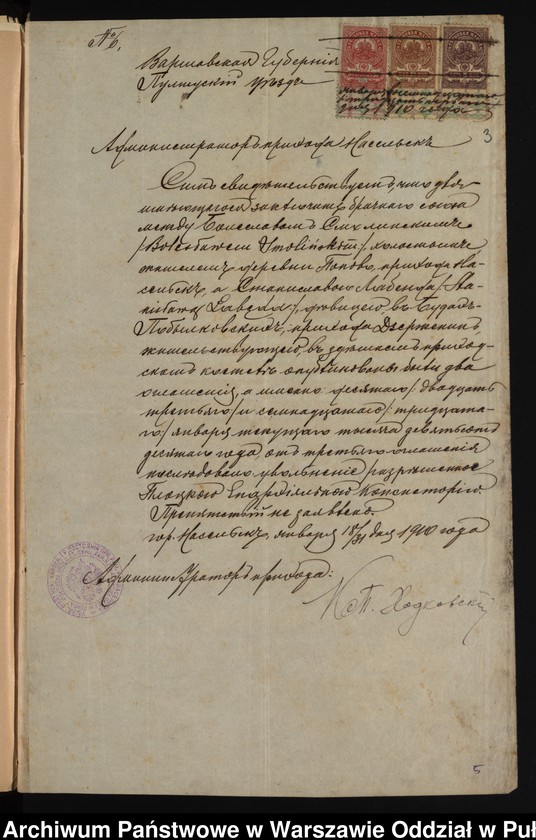 № 6.
Варшавская Губернія
Пултускій уездъ
1910 года
3
Администраторъ прихода Насельскъ
Симъ свидѣтельствуетъ, что для
имеющагося заключить брачнаго союза
между Болеславомъ Смолинскимъ
/Bolesławem Smolińskim/, холостымъ
жителемъ деревни Попово, прихода На-
сельскъ, а Станиславою Лавенда /Sta-
, девицею, въ Будахъ-
Побылковскихъ, прихода Дзержен
жительствующею, въ здешнемъ приход-
скомъ костелѣ опубликованы были два
оглашенія, а именно десятаго / двадцать
третьяго / и семнадцатаго / тридцата-
го / января текущаго тысяча девятьсотъ
десятаго года, отъ третьяго оглашенія
последовало увольненіе разрешенное
Плоцкою Епархіальною Консисторіею.
Препятствій не заявлено.
гор. Насельскъ, января 18/31 дня 1910 года
Администраторъ прихода:
Кс. П. Ходковскій
5
Archiwum Państwowe w Warszawie Oddział w Puł